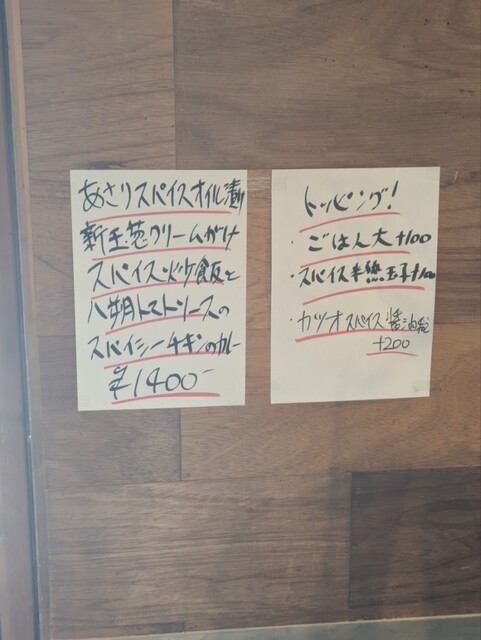 あさりスパイスオイル漬け
新玉葱クリームがけ
スパイス炒飯と
八朔トマトソースの
スパイシーチキンのカレー
¥1400-
トッピング!
・ごはん大+100
・スパイス半熟玉子+100
・カツオスパイス醤油麹
+200